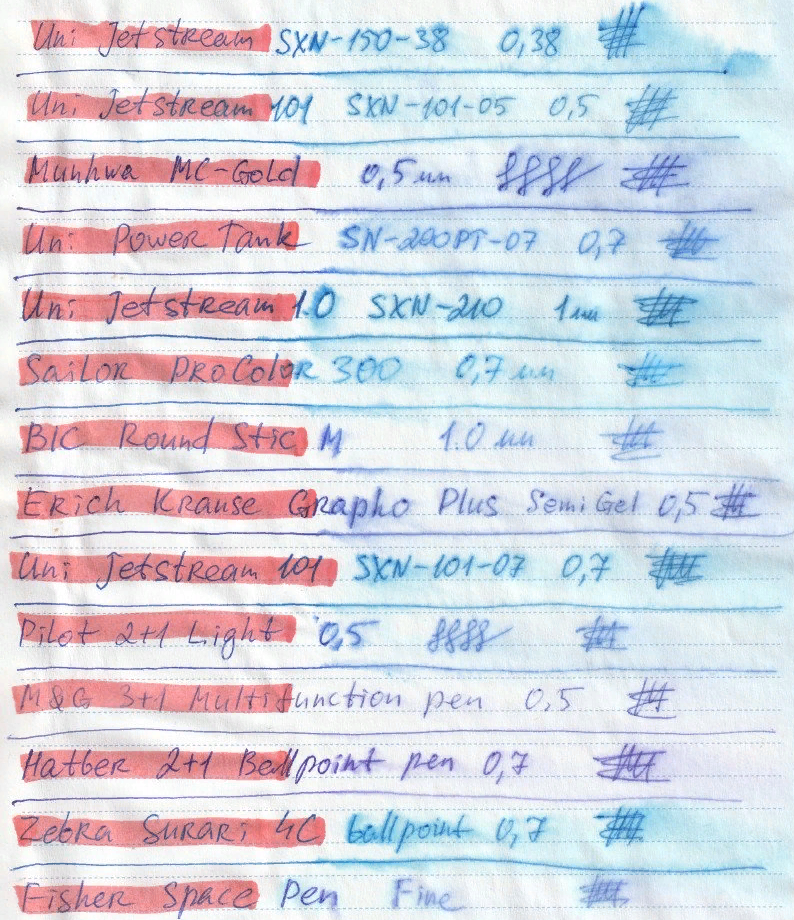 Uni Jetstream SXN-150-38 0,38
Uni Jetstream 101 SXN-101-05 0,5
Munhwa MC-Gold 0,5 мм
Uni Power Tank SN-200PT-07 0,7
Uni Jetstream 1.0 SXN-210 1мм
Sailor ProColor 300 0,7 мм
BIC Round Stic M 1.0 мм
Erich Krause Grapho Plus Semi Gel 0,5
Uni Jetstream 101 SXN-101-07 0,7
Pilot 2+1 Light 0,5
M&G 3+1 Multifunction pen 0,5
Hatber 2+1 Ballpoint pen 0,7
Zebra Surari 4C ballpoint 0,7
Fisher Space Pen Fine